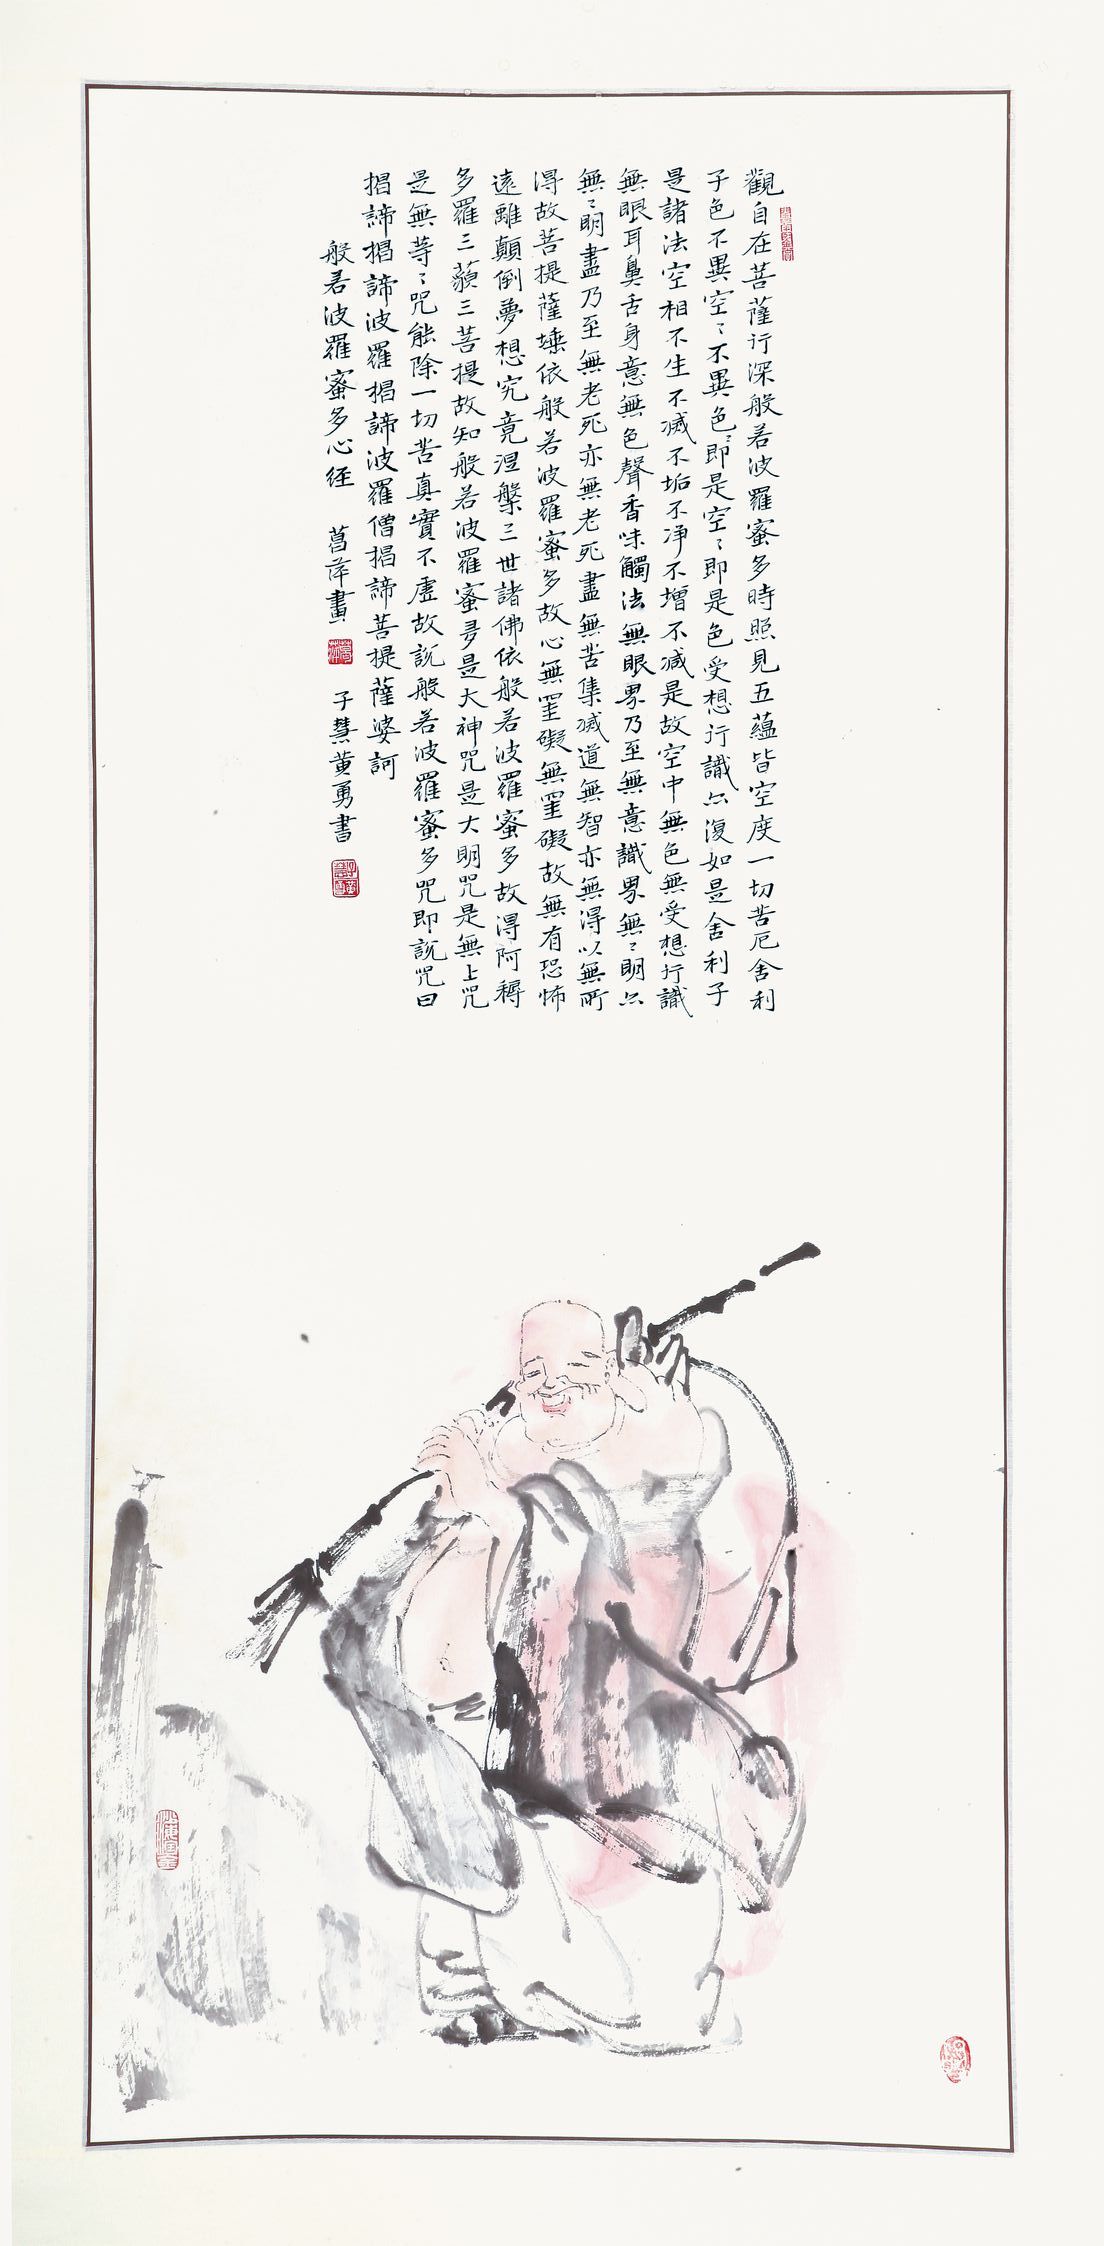 觀自在菩薩行深般若波羅蜜多時照見五蘊皆空度一切苦厄舍利
子色不異空〻不異色〻即是空〻即是色受想行識亦復如是舍利子
是諸法空相不生不滅不垢不淨不增不減是故空中無色無受想行識
無眼耳鼻舌身意無色聲香味觸法無眼界乃至無意識界無〻明亦
無〻明盡乃至無老死亦無老死盡無苦集滅道無智亦無得以無所
得故菩提薩埵依般若波羅蜜多故心無罣礙無罣礙故無有恐怖
遠離顛倒夢想究竟涅槃三世諸佛依般若波羅蜜多故得阿耨
多羅三藐三菩提故知般若波羅蜜多是大神咒是大明咒是無上咒
是無等〻咒能除一切苦真實不虛故説般若波羅蜜多咒即説咒曰
揭諦揭諦波羅揭諦波羅僧揭諦菩提薩婆訶
般若波羅蜜多心経 菖萍畫 子慧黄勇書